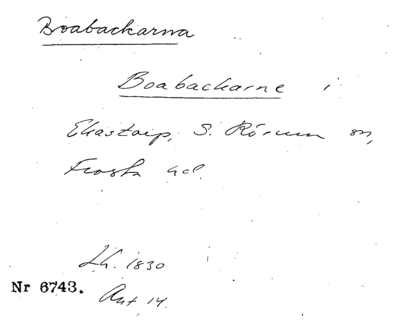 Boabackarna
Boabackarne i
Ekastorp, S. Rörum sn,
Frosta hd.
Lh. 1830
Nr 6743.
Akt 14.